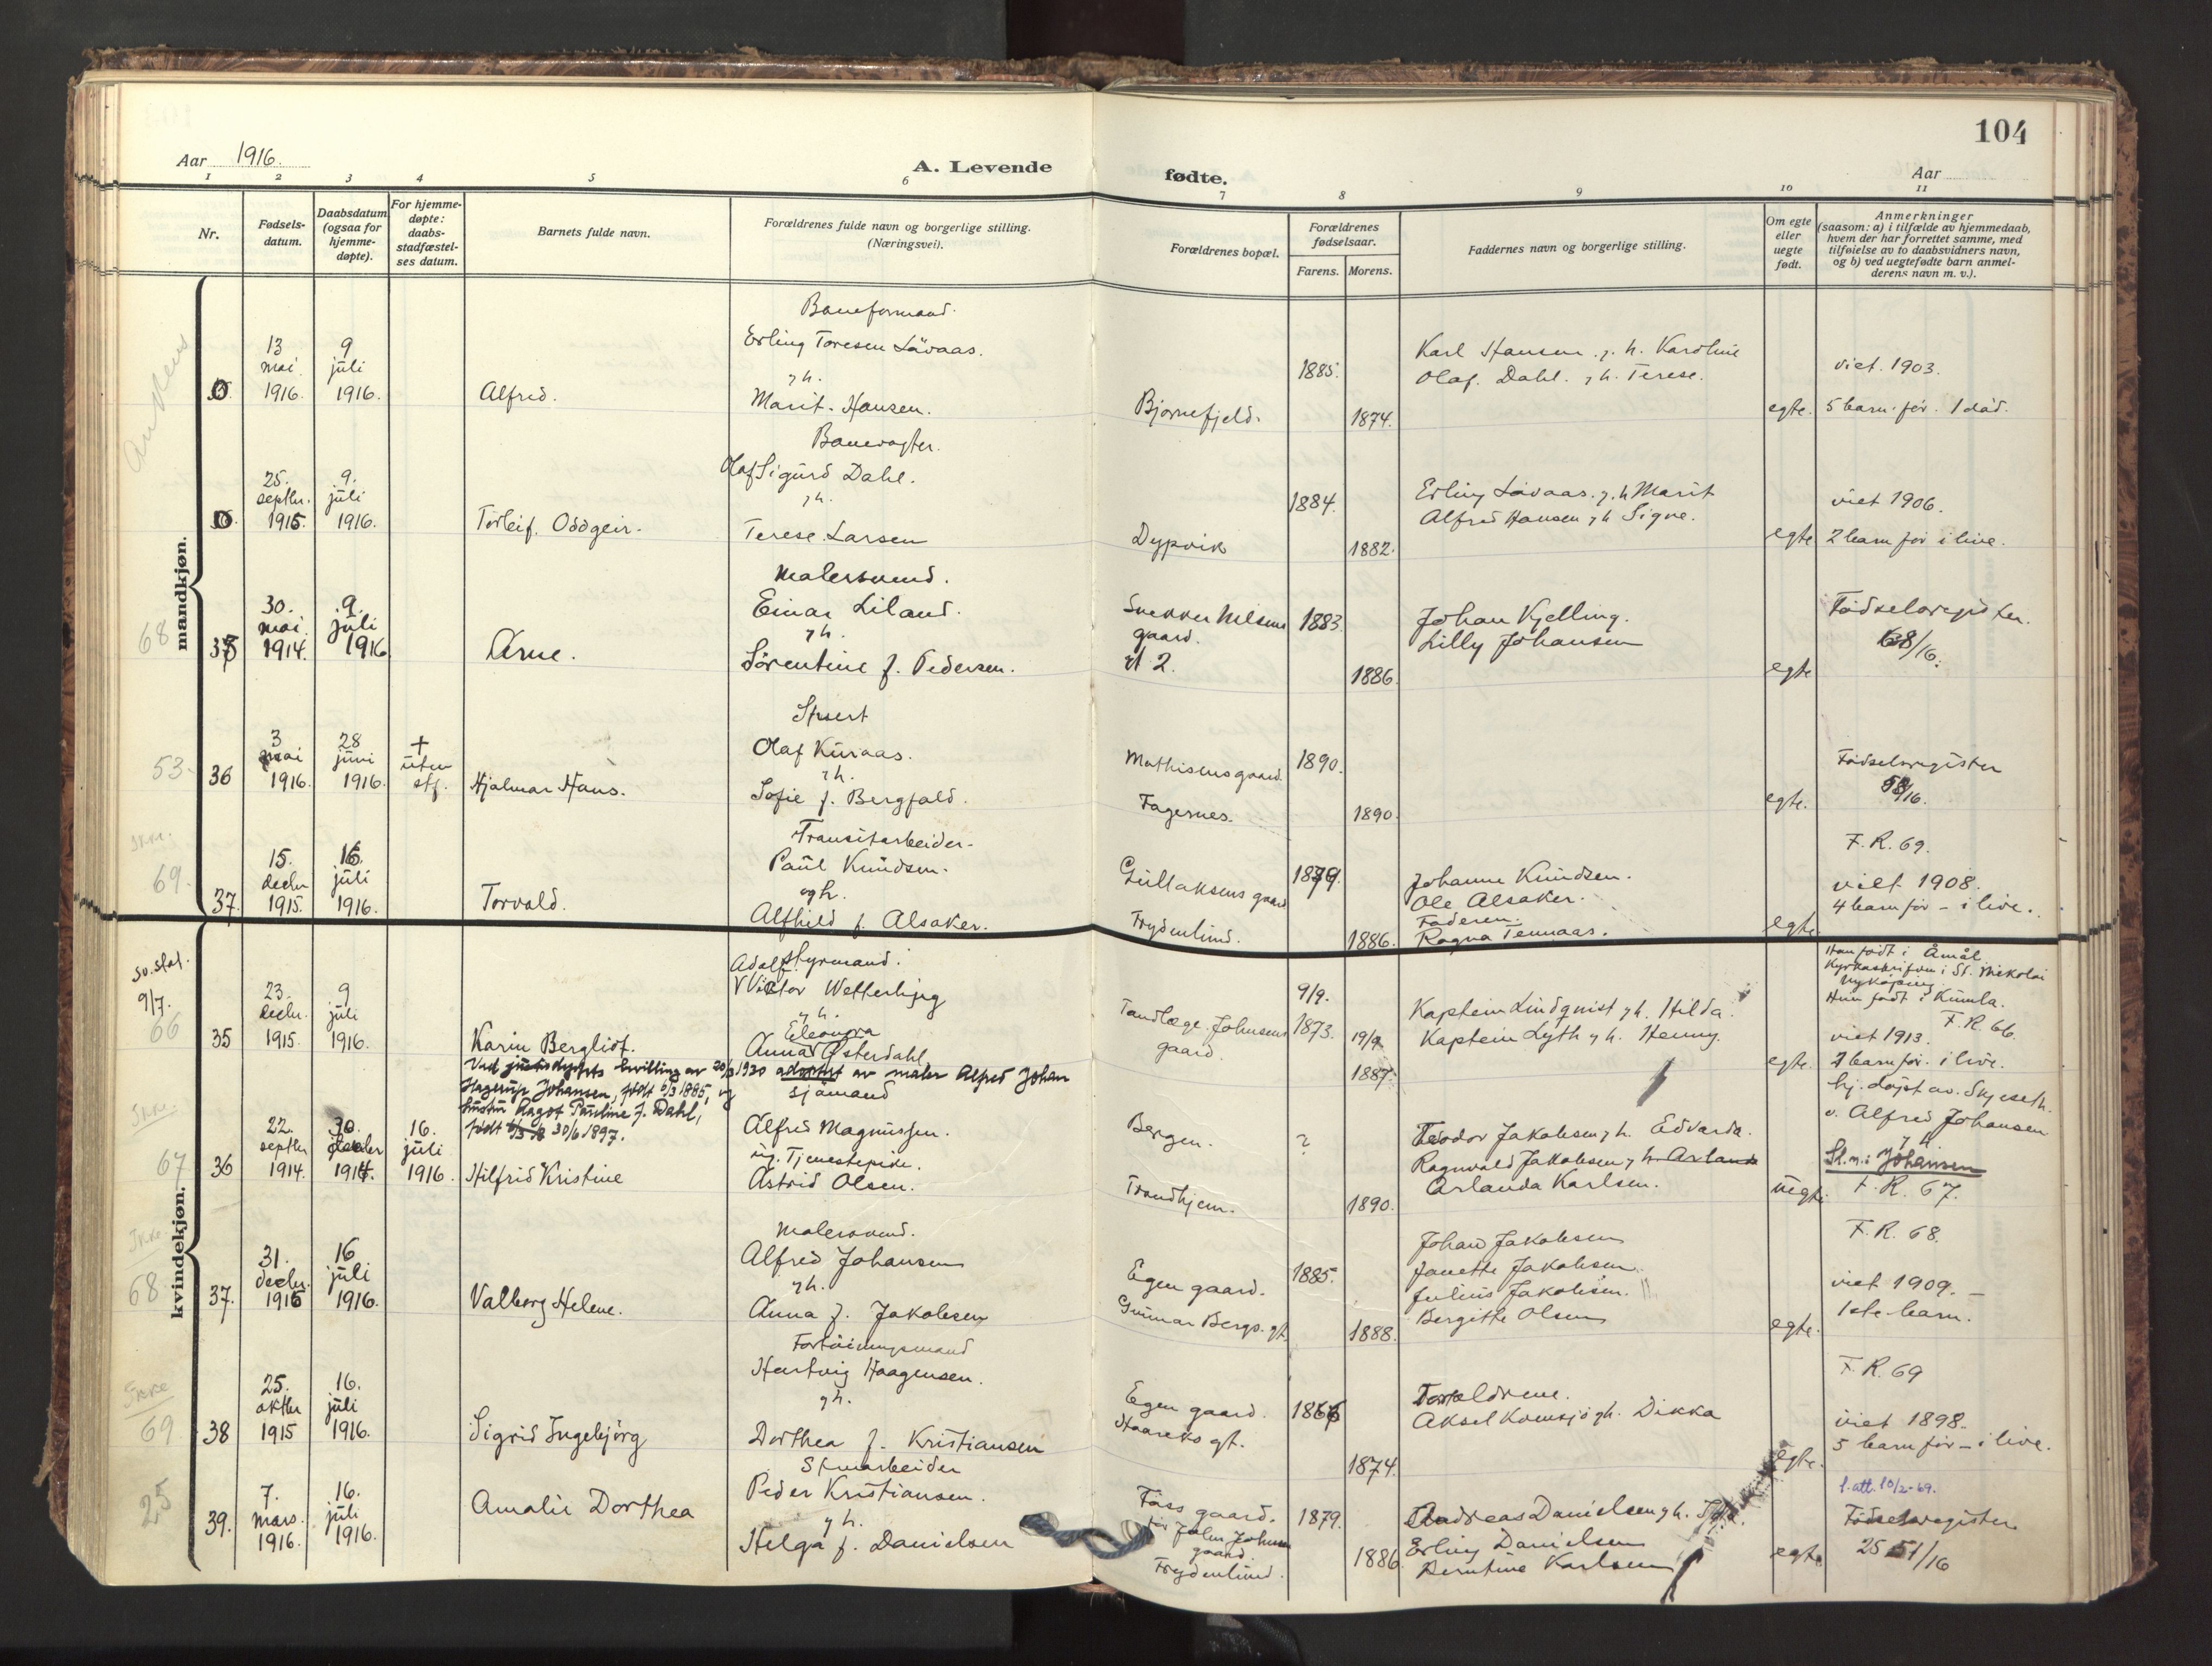 104
Aar 1916.
A. Levende
fødte.
Aar
1 2 3 4 5 6 7 8 9 10 11
Nr.
Fødsels-
datum.
Daabsdatum
(ogsaa for
hjemme-
døpte).
For hjemme-
døpte:
daabs-
stadfæstel-
ses datum.
Barnets fulde navn.
Forældrenes fulde navn og borgerlige stilling.
(Næringsvei).
Forældrenes bopæl.
Forældrenes
fødselsaar.
Farens. Morens.
Faddernes navn og borgerlige stilling.
Om egte
eller
uegte
født.
Anmerkninger
(saasom: a) i tilfælde av hjemmedaab,
hvem der har forrettet samme, med
tilføielse av to daabsvidners navn,
og b) ved uegtefødte barn anmel-
derens navn m. v.).
mandkjøn.
0
13
mai
1916.
9
juli
1916.
Alfred.
Baneformand.
Erling Toresen Løvaas.
g h.
Marit. Hansen.
Bjørnefjeld.
1885.
1874.
Karl Hansen g. h. Karoline
Olaf. Dahl. g h. Terese.
egte.
viet. 1903.
5 barn før. 1 død.
0
25.
septbr.
1915.
9.
juli
1916.
Torleif. Oddgeir.
Banevogter.
Olaf Sigurd Dahl.
g h.
Terese Larsen
Dypvik
1884.
1882.
Erling Løvaas. g. h Marit
Alfred Hansen g h Signe.
egte
viet 1906.
2 barn før i live.
68
35
30.
mai
1914.
9.
juli
1916
Arne.
Malersvend.
Einar Liland.
g h.
Sørentine f. Pedersen.
Snekker Nelsens
gaard.
1883.
1886.
Johan Kjelling.
Lilly Johansen
egte
Fødselsregister.
68/16.
53.
36
3
mai
1916.
28
juni
1916.
+
uten
stf.
Hjalmar Hans.
Stuert
Olaf Kuraas.
g h.
Sofie f. Bergfald.
Mathisens gaard.
Fagernes.
1890.
1890.
egte.
Fødselsregister
53/16.
69.
37.
15.
decbr
1915.
16.
juli
1916.
Torvald.
Transitarbeider.
Paul Knudsen.
og h.
Alfhild f. Alsaker.
Gullaksens gaard
Frydenlund.
1879.
1886.
Johanne Knudsen.
Ole Alsaker.
Faderen.
Ragna Tennaas.
egte
F. R. 69.
viet 1908.
4 barn før - i live.
kvindekjøn.
9/7.
66
35
23.
decbr.
1915.
9
juli
1916.
Karin Bergliot.
Styrmand.
Adolf
Victor Wetterbjeg
g h.
Eleonora
Anna Østerdahl
Tandlæge Johnsens
gaard.
9/9.
1873.
1887.
Kaptein Lindquist g h. Hilda.
Kaptein Lyth g h. Henny.
egte.
Han født i Åmål
Hun født i Kumla.
F. R. 66
viet 1913.
barn før. i live.
Ved justisdepts bevilling av 20/3 1920 adoptert av maler Alfred Johan
Hagerup Johansen, født 1885, og
hustru Ragot Pauline f. Dahl,
født 30/6 1897.
67
36
22.
septbr
1914.
30.
1914.
16.
juli
1916.
Hilfrid Kristine
sjømand
Alfred Magnussen.
ug. Tjenestepike.
Astrid Olsen.
Bergen.
Trondhjem.
?
1890.
Teodor Jakobsen g h. Edvarda.
Ragnvald Jakobsen g h. Arlanda
Arlanda Karlsen.
uegte.
hj. døpt av. Skjeseth.
v. Alfred Johansen
g h.
Sl.n.: Johansen
F. R. 67.
Ikke
68
37.
31.
decbr.
1915
16
juli
1916.
Valborg Helene.
Malersvend.
Alfred Johansen
g h.
Anna f. Jakobsen
Egen gaard.
Gunnar Bergs. gt.
1885.
1888.
Johan Jakobsen
Janette Jakobsen.
Julius Jakobsen.
Bergitte Olsen
egte.
F. R. 68.
viet 1909.
1ste barn.
Ikke
69
38
25.
oktbr
1915
16.
juli
1916.
Sigrid Ingebjørg
Fortøiningsmand
Hartvig Haagensen.
g h.
Dorthea f. Kristiansen
Egen gaard.
Haareks gt.
1866
1874.
Forældrene.
Aksel Kvensjø g h. Dikka
egte.
F. R. 69
viet 1898.
5 barn før - i live.
25
39.
7.
mars.
1916.
16.
juli
1916.
Amalie Dorthea
Peder Kristiansen.
g h.
Helga f. Danielsen
Foss gaard.
gaard
Frydenlund.
1879.
1886
Andreas Danielsen g h.
Erling Danielsen
Berntine Karlsen
egte.
f. att. 10/2-69.
Fødselsregister
25 51/16